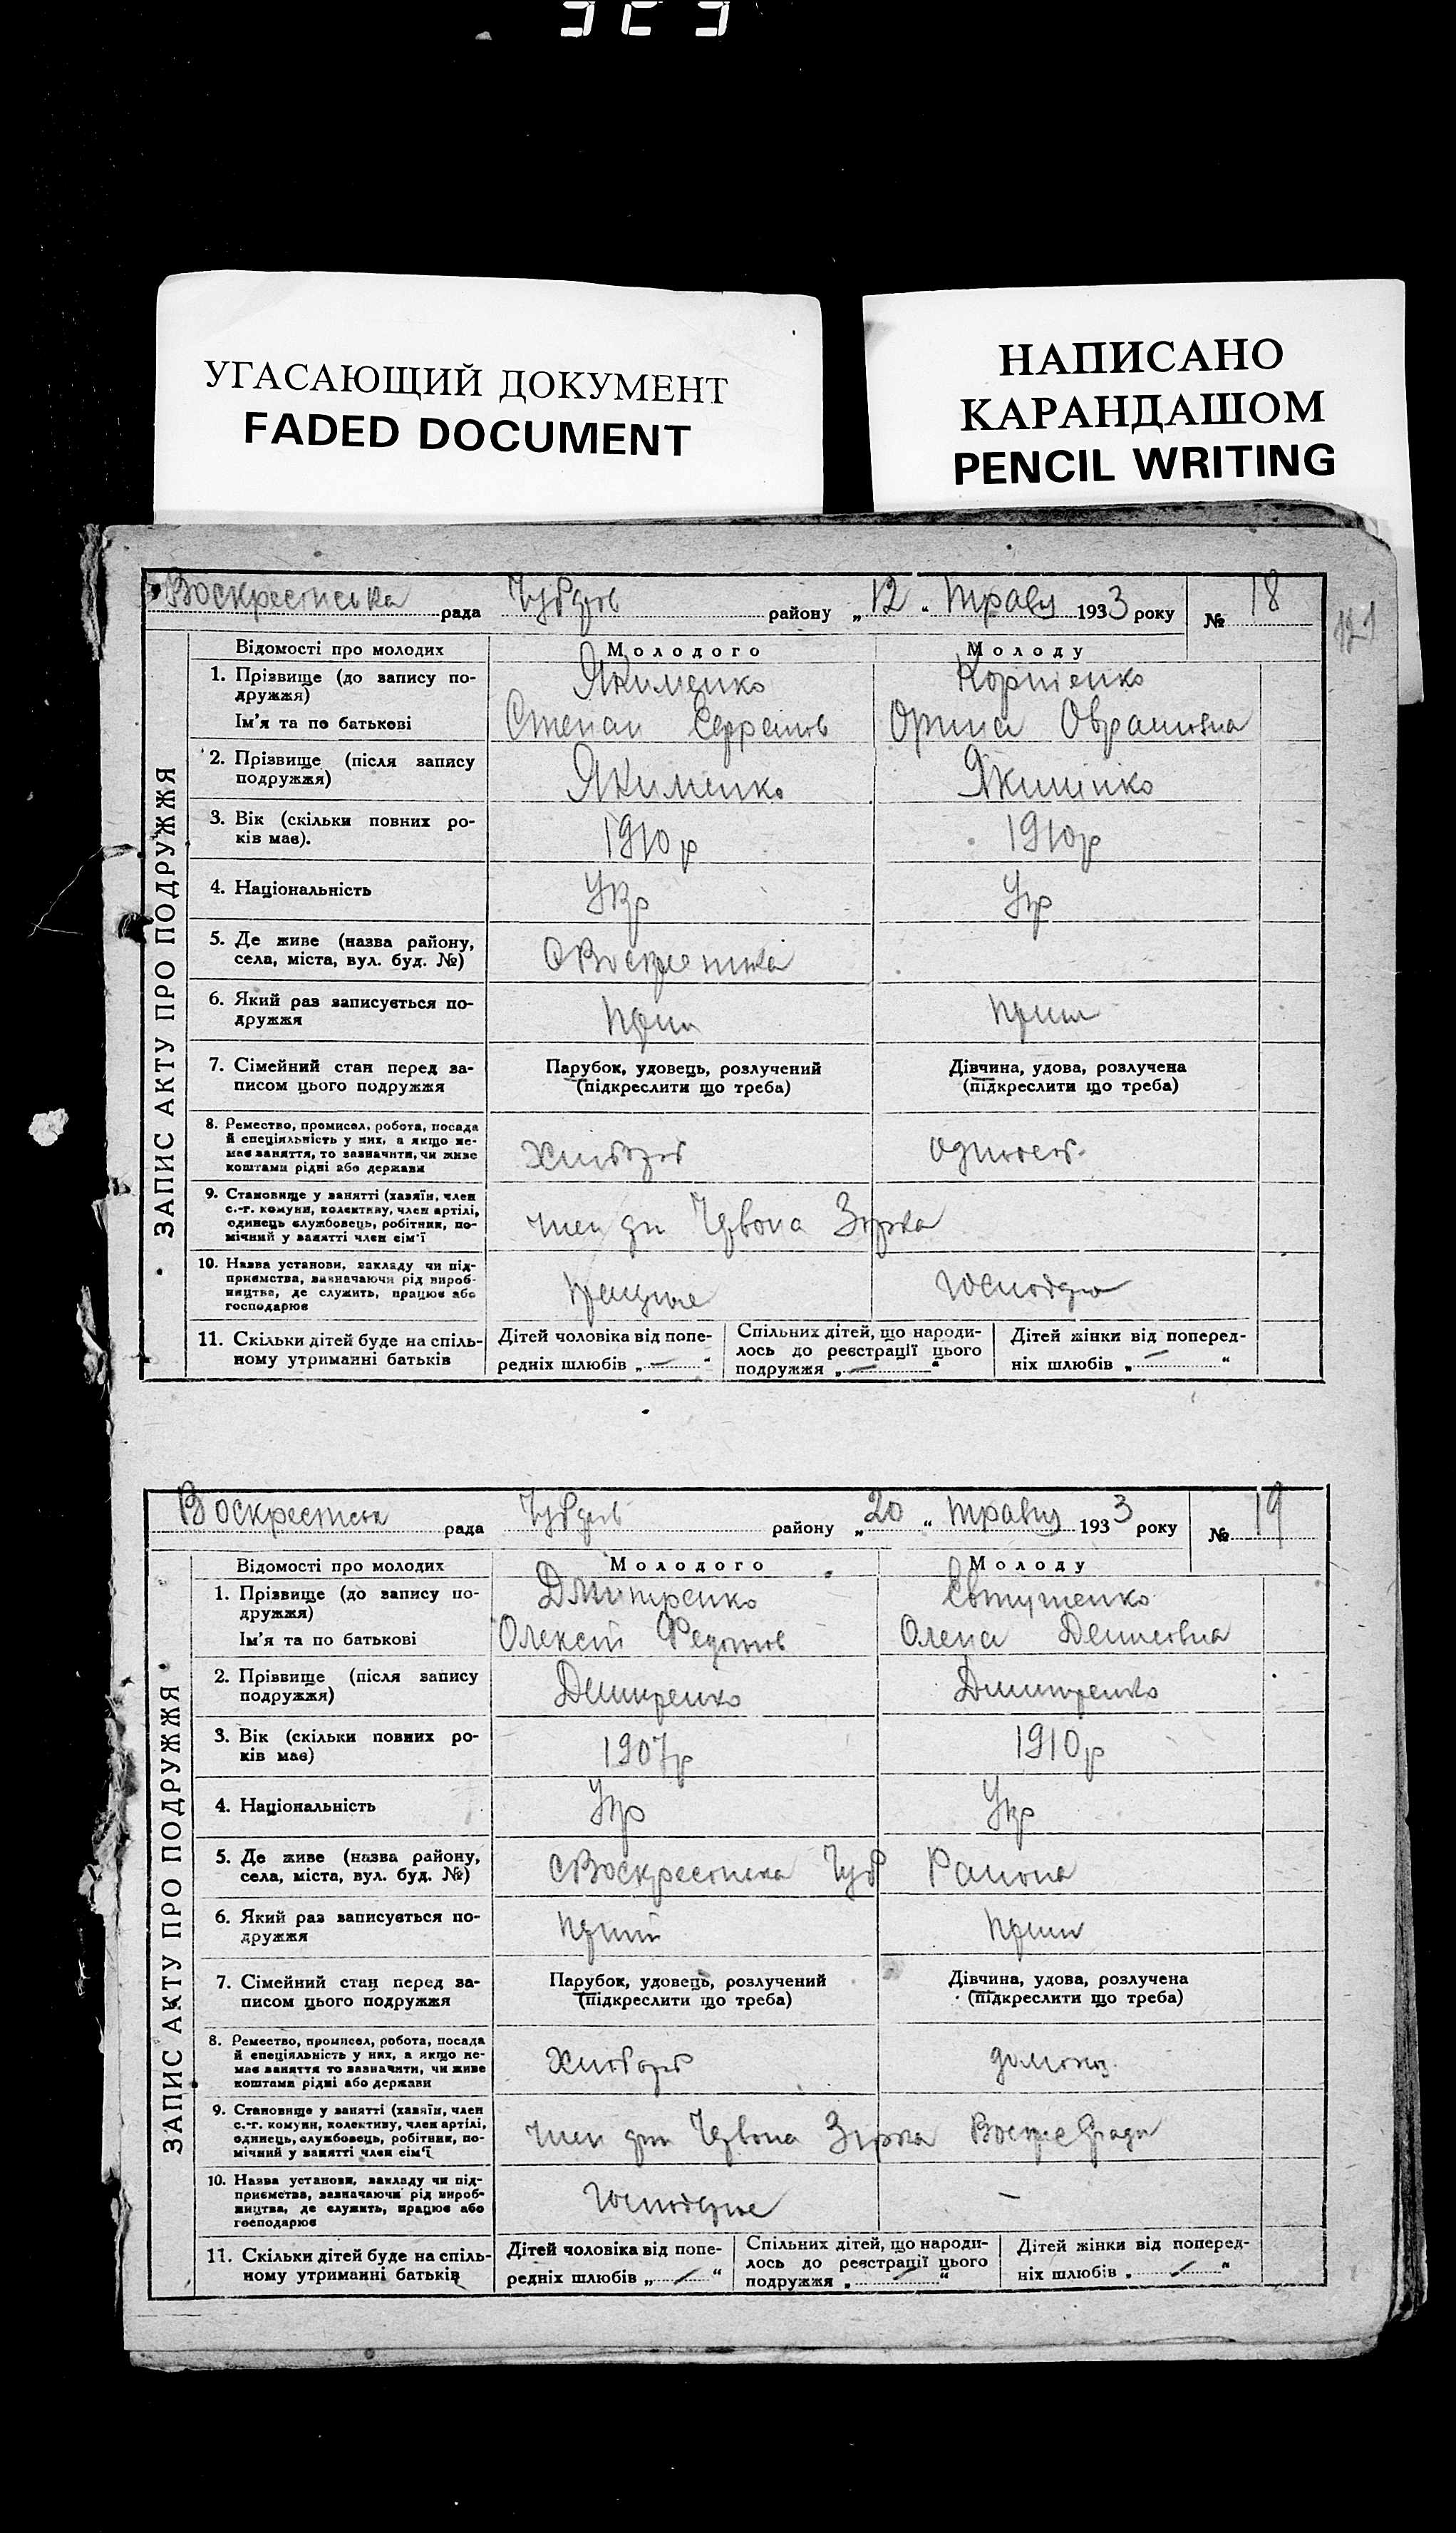 УГАСАЮЩИЙ ДОКУМЕНТ
FADED DOCUMENT
НАПИСАНО
КАРАНДАШОМ
PENCIL WRITING
ЗАПИС АКТУ ПРО ПОДРУЖЖЯ
Воскресенська рада району „12“ Травня 1933 року № 18
Відомості про молодих Молодого Молоду
1. Прізвище (до запису по- Якименко Корнієнко
дружжя)
Ім'я та по батькові Степан Орина
2. Прізвище (після запису Якименко Якименко
подружжя)
3. Вік (скільки повних ро- 1910р 1910р
ків має).
4. Національність Укр Укр
5. Де живе (назва району,
села, міста, вул. буд. №)
6. Який раз записується по-
дружжя
7. Сімейний стан перед за- Парубок, удовець, розлучений Дівчина, удова, розлучена
писом цього подружжя (підкреслити що треба) (підкреслити що треба)
8. Ремество, промисел, робота, посада
й спеціяльність у них, а якщо не-
має заняття, то зазначити, чи живе
коштами рідні або держави
9. Становище у занятті (хазяїн, член
с.-г. комуни, колективу, член артілі, член Червона Зірка
одинець службовець, робітник, по-
мічний у занятті член сім'ї
10. Назва установи, закладу чи під-
приємства, зазначаючи рід вироб- працює
ництва, де служить, працює або
господарює
11. Скільки дітей буде на спіль- Дітей чоловіка від попе- Спільних дітей, що народи- Дітей жінки від поперед-
ному утриманні батьків редніх шлюбів „—“ лось до реєстрації цього ніх шлюбів „—“
подружжя „—“
121
ЗАПИС АКТУ ПРО ПОДРУЖЖЯ
рада району „20“ Травня 1933 року № 19
Відомості про молодих Молодого Молоду
1. Прізвище (до запису по- Дмитренко Євтушенко
дружжя)
Ім'я та по батькові Олексій Федотов Олена Денисовна
2. Прізвище (після запису Дмитренко Дмитренко
подружжя)
3. Вік (скільки повних ро- 1907р 1910р
ків має)
4. Національність Укр Укр
5. Де живе (назва району, Чуб Района
села, міста, вул. буд. №)
6. Який раз записується по-
дружжя
7. Сімейний стан перед за- Парубок, удовець, розлучений Дівчина, удова, розлучена
писом цього подружжя (підкреслити що треба) (підкреслити що треба)
8. Ремество, промисел, робота, посада
й спеціяльність у них, а якщо не-
має заняття то зазначити, чи живе
коштами рідні або держави
9. Становище у занятті (хазяїн, член
с.-г. комуни, колективу, член артілі, член Червона Зірка
одинець, службовець, робітник, по-
мічний у занятті член сім'ї
10. Назва установи, закладу чи під-
приємства, зазначаючи рід вироб- —
ництва, де служить, працює або
господарює
11. Скільки дітей буде на спіль- Дітей чоловіка від попе- Спільних дітей, що народи- Дітей жінки від поперед-
ному утриманні батьків редніх шлюбів „—“ лось до реєстрації цього ніх шлюбів „—“
подружжя „—“